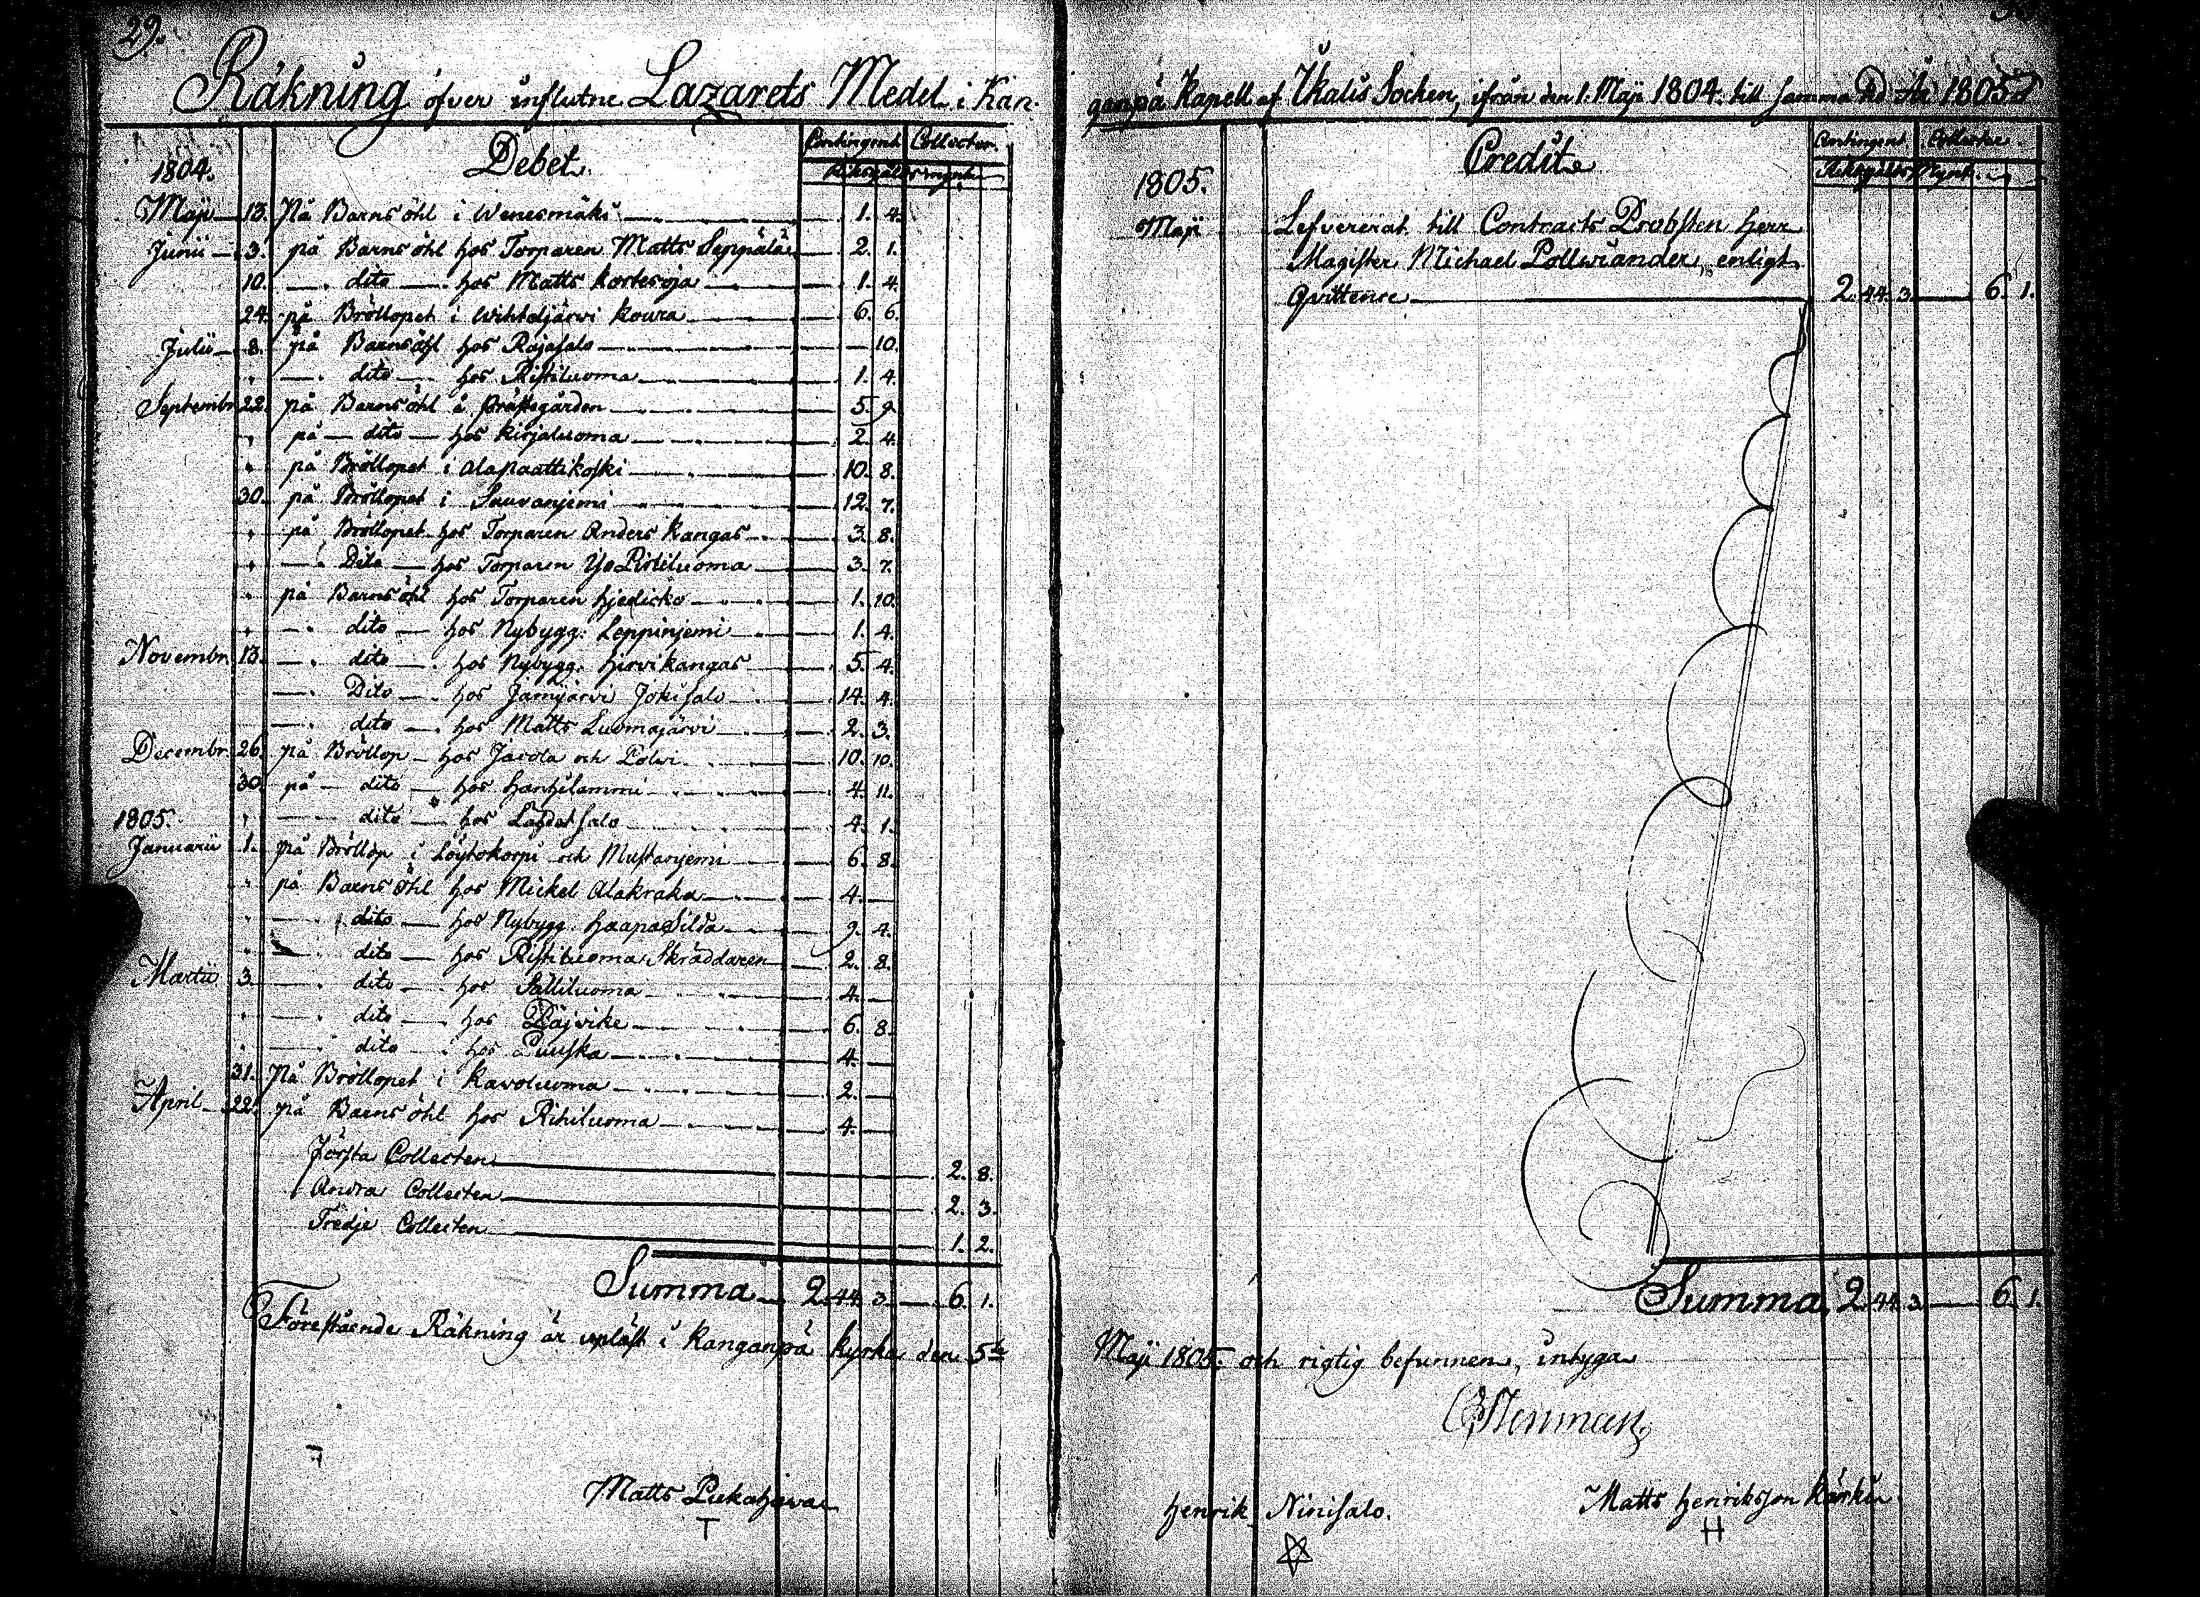 29.
Räkning öfver influtne Lazarets Medel i Kan-
1804. Debet. Contingent. Collecter.
Riksgälds mynt
Maji 13. På Barnsöhl i Wenesmäki 1. 4.
Junii 3. på Barnsöhl hos Torparen Matts Seppälä 2. 1.
10. dito hos Matts Kortesoja 1. 4.
24. på Bröllopet i Wihteljärwi Koura 6. 6.
Julii 8. på Barnsöhl hos Rajasalo 10.
" dito hos Ristiluoma 1. 4.
Septembr 22. på Barnsöhl å Prästegården 5. 9.
" på dito hos Kirjaluoma 2. 4.
" på Bröllopet i Alapaattikoski 10. 8.
30. på Bröllopet i Sauvanjemi 12. 7.
" på Bröllopet hos Torparen Anders Kangas 3. 8.
" Dito hos Torparen Ristiluoma 3. 7.
" på Barnsöhl hos Torparen Hjedicko 1. 10.
" dito hos Nybygg. Leppinjemi 1. 4.
Novembr. 13. dito hos Nybygg. Hirvikangas 5. 4.
Dito hos Jämijärvi Jokisalo 14. 4.
dito hos Matts Luomajärvi 2. 3.
Decembr. 26. på Bröllop hos Jarola och Polvi 10. 10.
30. på dito hos Hanhilammi 4. 11.
1805. " dito hos 4. 1.
Januarii 1. på Bröllop i Löytokorpi och Mustanjemi 6. 8.
" på Barnsöhl hos Mickel Alakraka 4.
" dito hos Nybygg. Haapasilda 9. 4.
" dito hos Ristiluoma Skräddaren 2. 8.
Martii 3. dito hos Sälliluoma 4.
" dito hos Päjvike 6. 8.
" dito hos Puuska 4.
31. På Bröllopet i Karoluoma 2.
April 22. på Barnsöhl hos Rihiluoma 4.
Första Collecten 2. 8.
Andra Collecten 2. 3.
Tredje Collecten 1. 2.
Summa 2. 44. 3. 6. 1.
Föreståënde Räkning är upläst i Kanganpä Kyrka den 5te
Matts Pukahava
T
ganpä Kapell af Ikalis Sochen, ifrån den 1. Maji 1804. till samma tid År 1805.
1805. Credit Contingent. Collecter.
Riksgälds Mynt.
Maji Lefvererat till Contracts Probsten Herr
Magister Michael Pollwiander, enligt
Qvittence 2. 44. 3. 6. 1.
Summa 2. 44. 3. 6. 1.
Maji 1805. och rigtig befunnen, intyga
Henrik Ninisalo.
Matts Henriksson Kärki
H